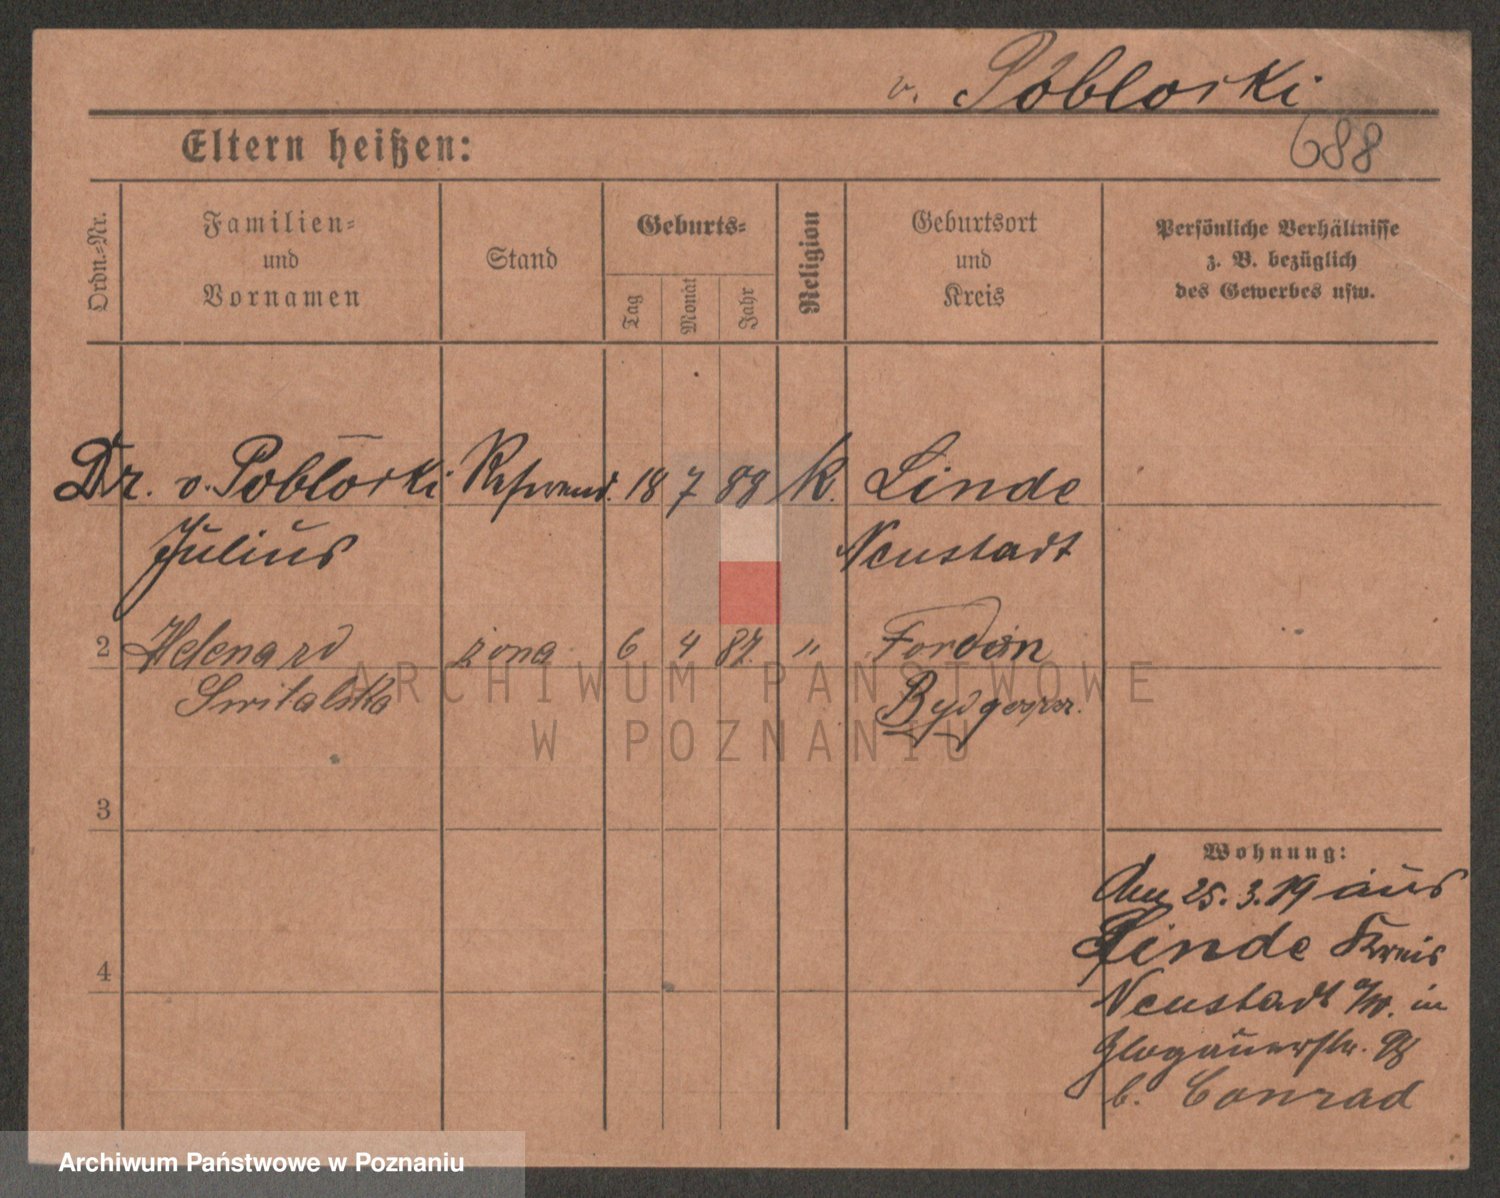 v. Poblocki
688
Eltern heißen:
Ordn.-Nr.
Familien-
und
Vornamen
Stand
Geburts-
Tag
Monat
Jahr
Religion
Geburtsort
und
Kreis
Persönliche Verhältnisse
z. B. bezüglich
des Gewerbes usw.
Dr. v. Poblocki Referend. 18 7 88 K. Linde
Julius Neustadt
2 Helena zd żona 6 4 87. " Fordon
Switalska Bydgoszcz.
3
4
Wohnung:
Am 25.3.19 aus
Linde Kreis
Neustadt a/W. in
Glogauerstr. 98
b. Conrad
ARCHIWUM PAŃSTWOWE
W POZNANIU
Archiwum Państwowe w Poznaniu